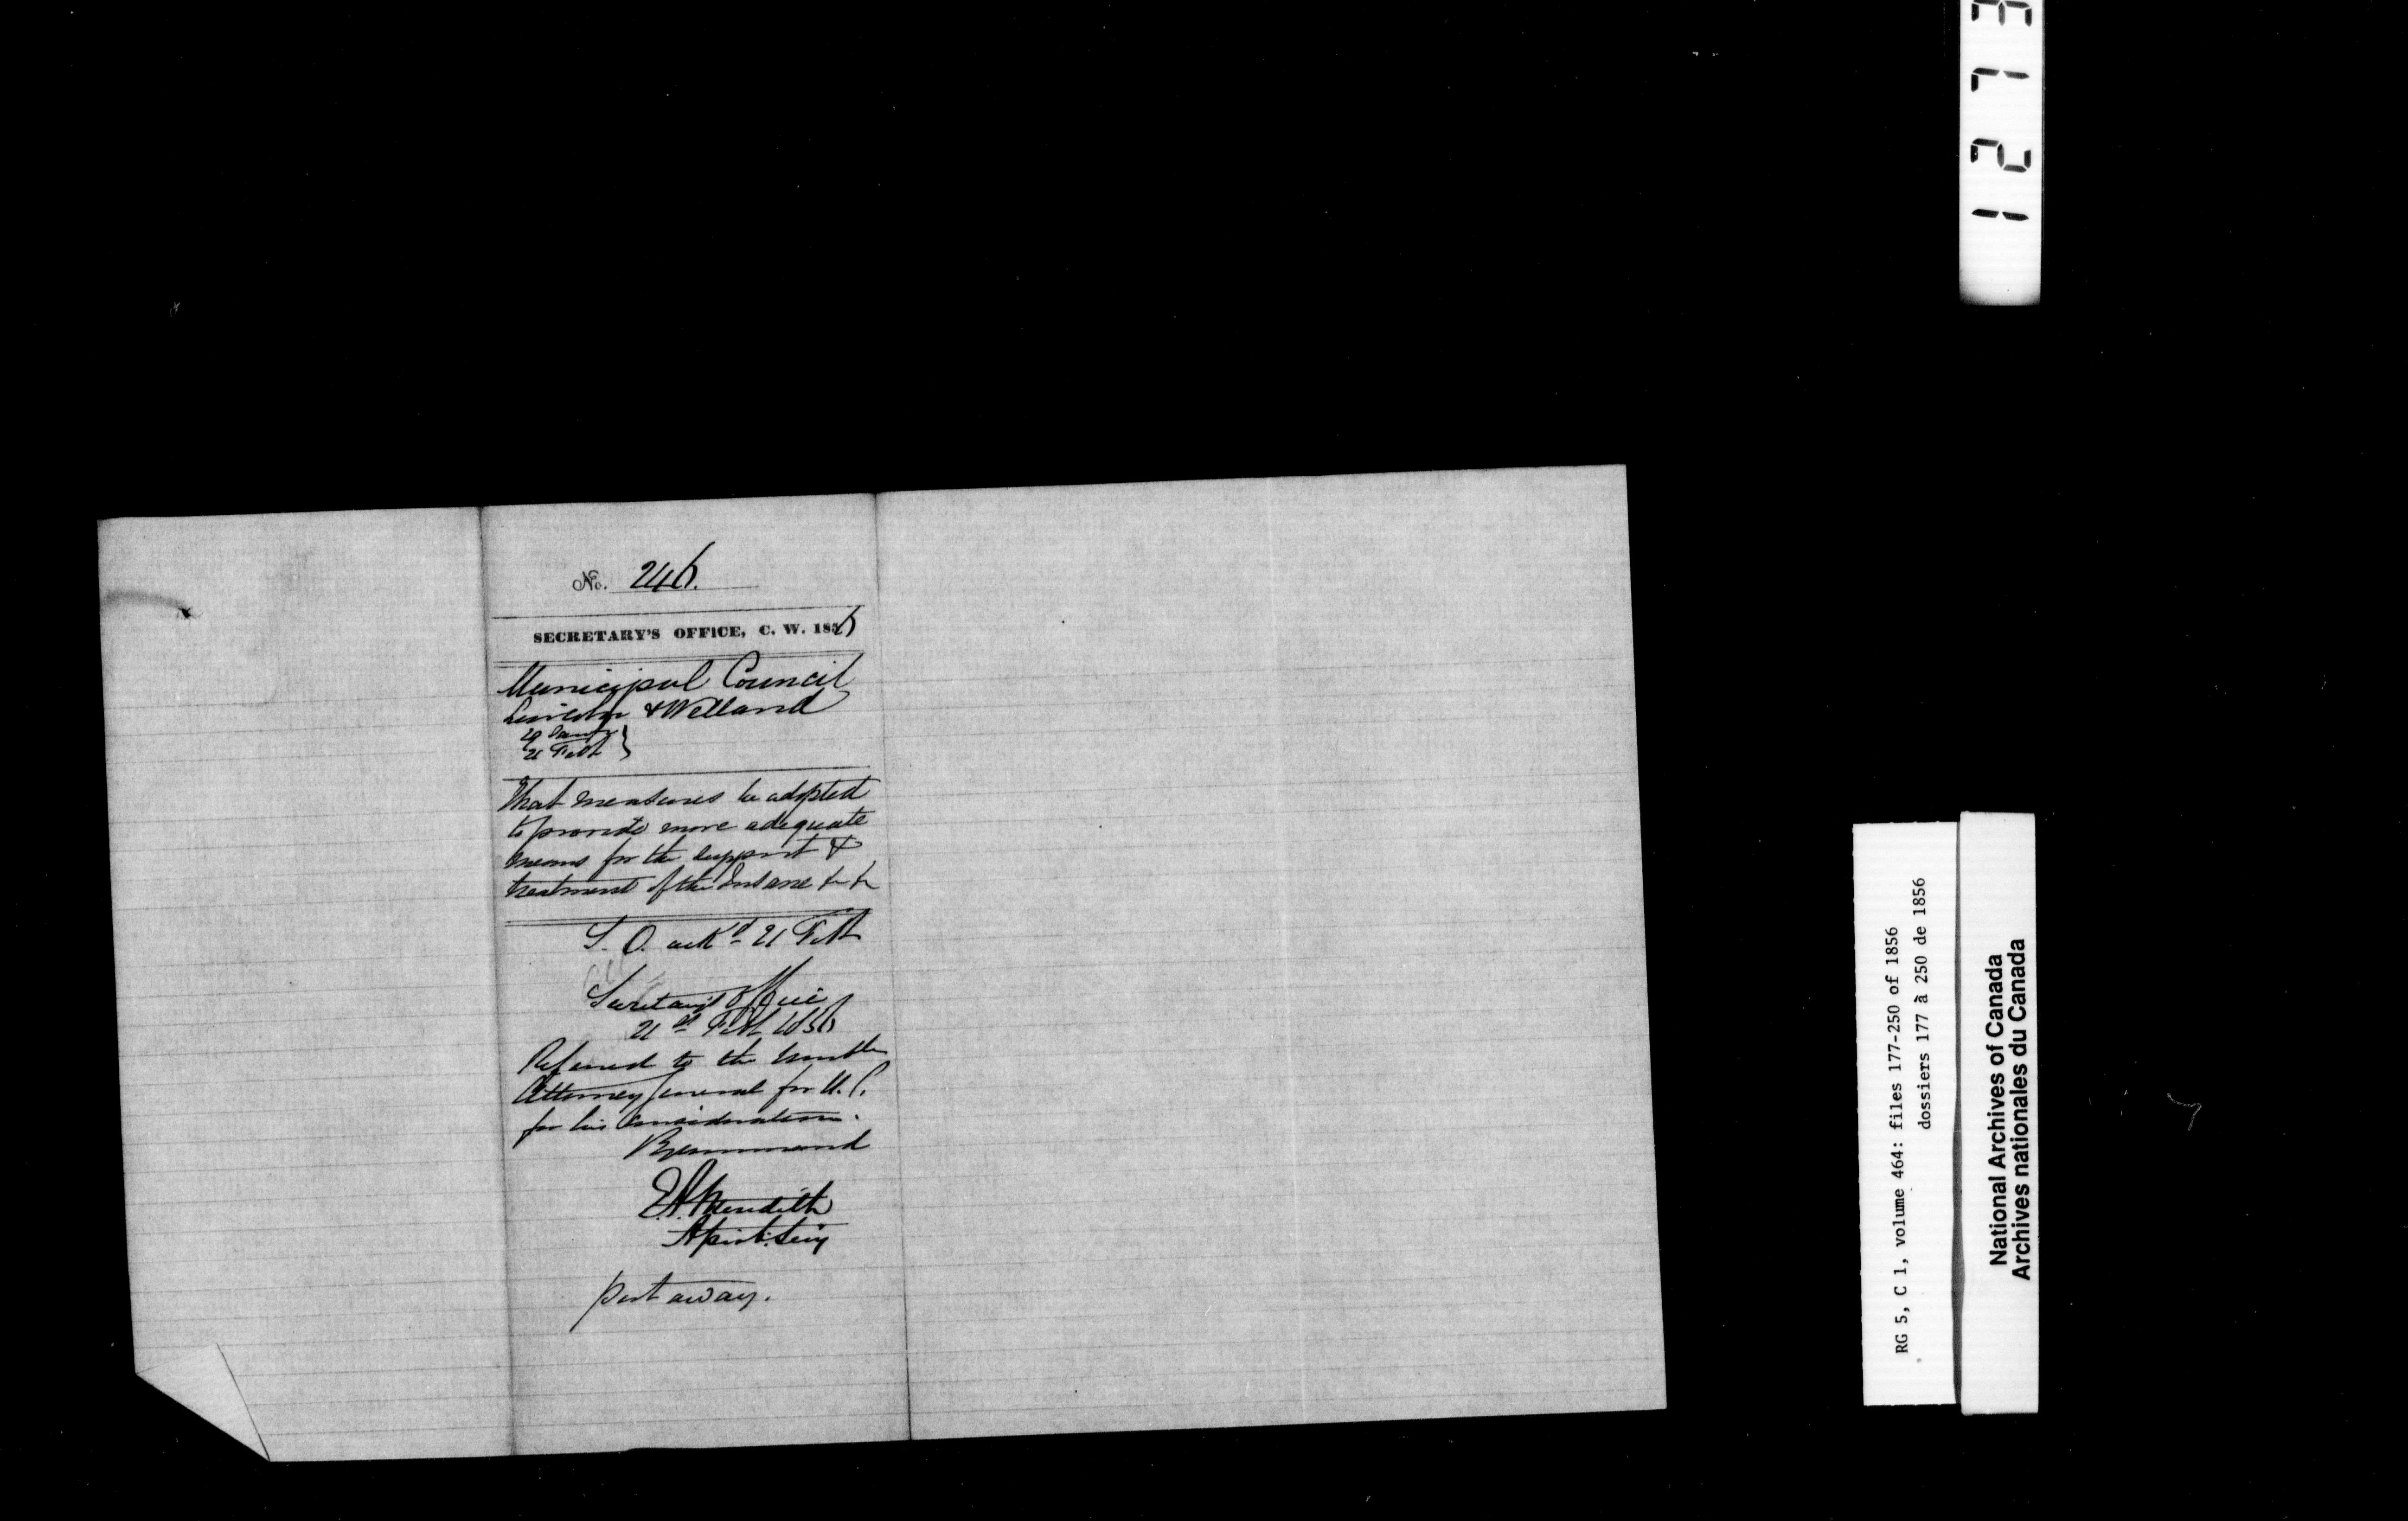 No. 246.
SECRETARY'S OFFICE, C. W. 1856
Municipal Council
Lincoln & Welland
29 Jany
21 Feb }
That measures be adopted
to provide more adequate
means for the support &
treatment of the Insane &c &c
L. O. ackd 21 Feb
Secretary's Office
21st Feb 1856
Referred to the Honble
Attorney General for U. C.
for his consideration.
By command
E. A. Meredith
Assist. Secy
put away.
1273
RG 5, C 1, volume 464: files 177-250 of 1856
dossiers 177 à 250 de 1856
National Archives of Canada
Archives nationales du Canada